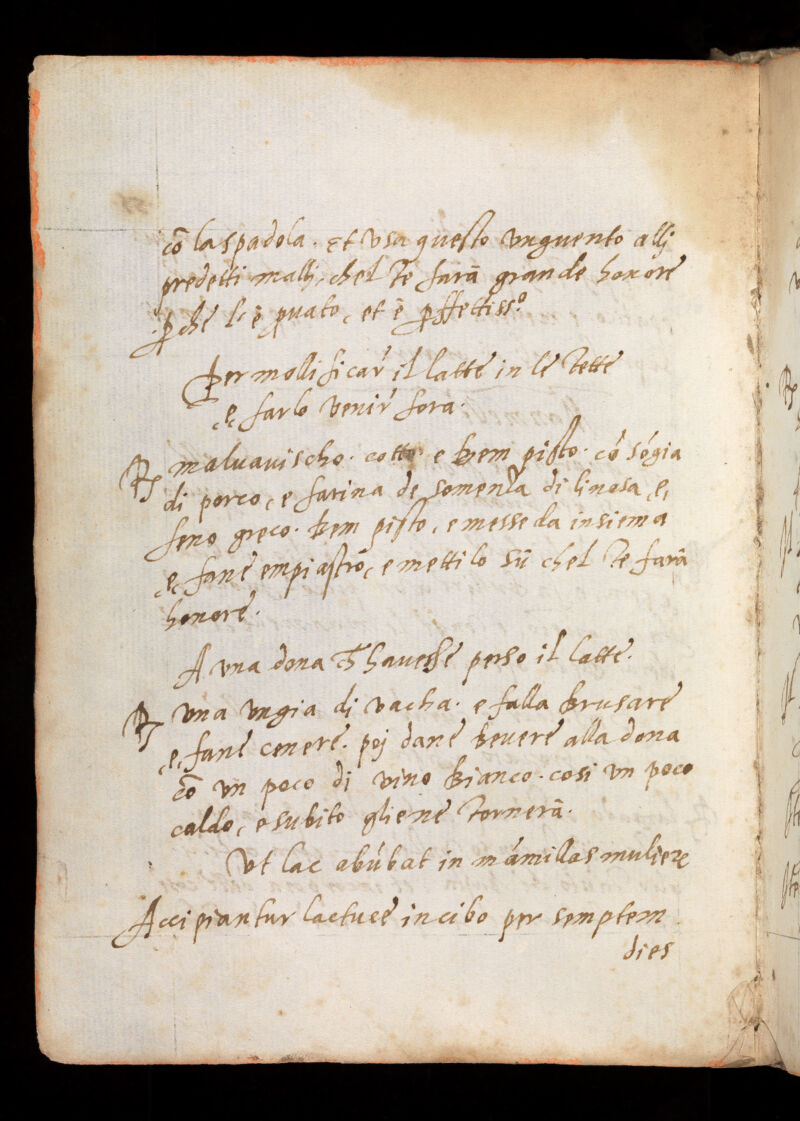 cō la spadola. et usa questo unguento allj
predetti mallj, chel te farà grande honore
ꝑche l'è ꝓuato, et è ꝑffettissº.
Per mollificar il latte in le tette
e farlo venir fora.
℞ malvavischo. cotto e ben pisto. cō sōgia
di porco, e farina de somenza di linosa, e,
feno greco. ben pisto, e messeda insiema
e fane empiastro, e mettilo sù chel te farà
honore.
A una dona ch havesse perso il latte.
℞ una ungia di vacha. e falla brusare
e fane cenere. poj dane bevere alla dona
cō un poco di vino bianco. cosi un poco
caldo, e subito gliene tornerà.
Ut lac abūdat in māmillas muliere
Accipiantur lactuce in cibo per semptem
dies